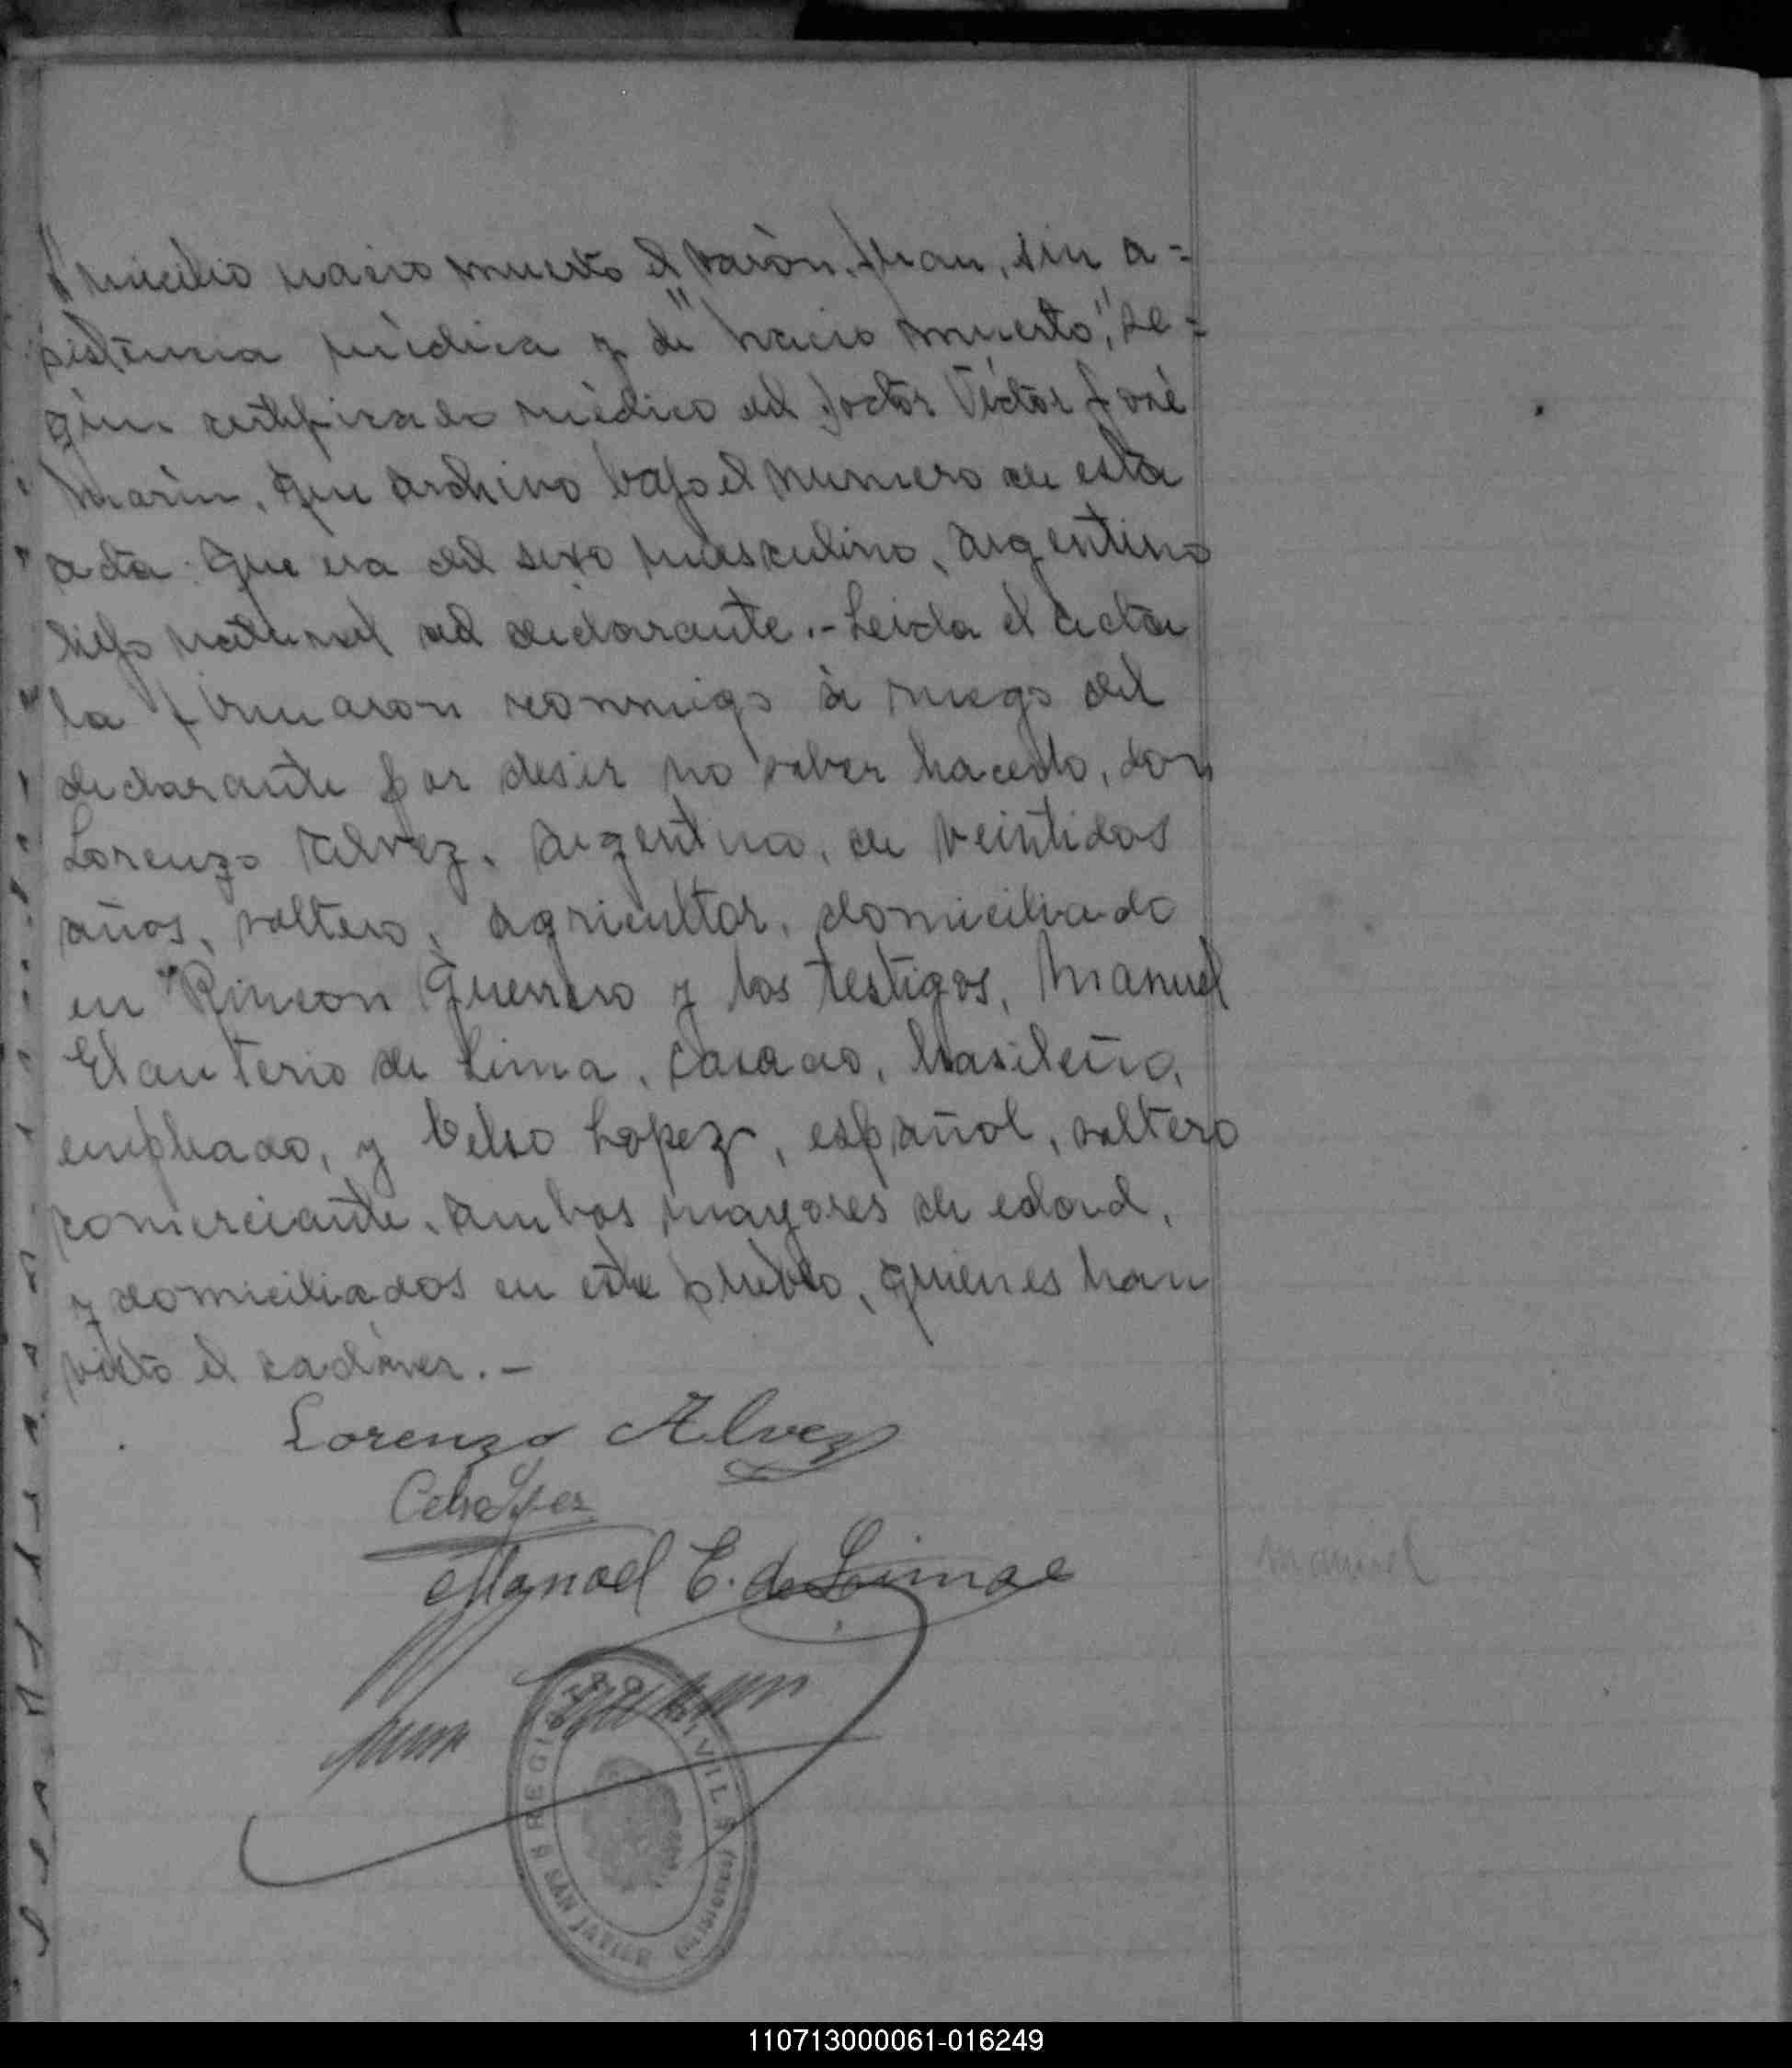 micilio nacio muerto el varón, Juan, sin a=
sistencia médica y de "nacio muerto", se=
gún certificado médico del Doctor Víctor José
Marin, que archivo bajo el numero de esta
acta: Que era del sexo masculino, argentino
hijo natural del declarante.- Leida el acta
la firmaron conmigo à ruego del
declarante por desir no saber hacerlo, don
Lorenzo Alvez, Argentino, de veintidos
años, soltero, agricultor, domiciliado
en Rincon Guerrero y los testigos, Manuel
Elauterio de Lima, casado, brasileño,
empleado, y Celso Lopez, español, soltero
comerciante, ambos mayores de edad,
y domiciliados en este pueblo, quienes han
visto el cadáver.-
Lorenzo Alvez
Celso Lopez
Manoel E. de Lima
Manuel
REGISTRO CIVIL
SAN JAVIER (Misiones)
110713000061-016249